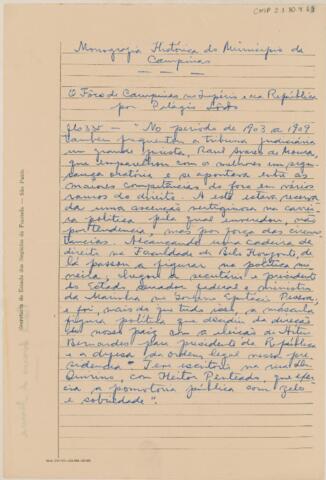 CMP 2.1.30.9.63
Monografia Histórica do Município de
Campinas
O Fôro de Campinas no Império e na República
por Pelágio Lôbo
fls 330 — "No período de 1903 a 1909
também frequentou a tribuna judiciária
um grande jurista, Raul Soares de Moura,
que emparelhou com os melhores em segu-
rança oratória e se apontava entre as
maiores competências do foro em vários
ramos do direito. A este estava reserva
da uma ascensão vertiginosa na carrei
ra política, pela qual enveredou, não
por tendencia, mas por força das circun
tancias. Alcançando uma cadeira de
direito na Faculdade de Belo Horizonte, de
lá passou a figurar na política mi
neira, chegou a secretário e presidente
do Estado, senador federal e ministro
da Marinha no Govêrno Epitácio Pessoa,
e foi, mais do que tudo isso, a máscula
figura política que decidiu da direção
do nosso país com a eleição de Artur
Bernardes para presidente da República
e a defesa da ordem legal nessa pre
sidencia". Tem escritório na rua Dr.
Quirino, com Heitor Penteado, que exer
cia a promotoria pública com zelo
e sobriedade".
Secretaria de Estado dos Negócios da Fazenda — São Paulo